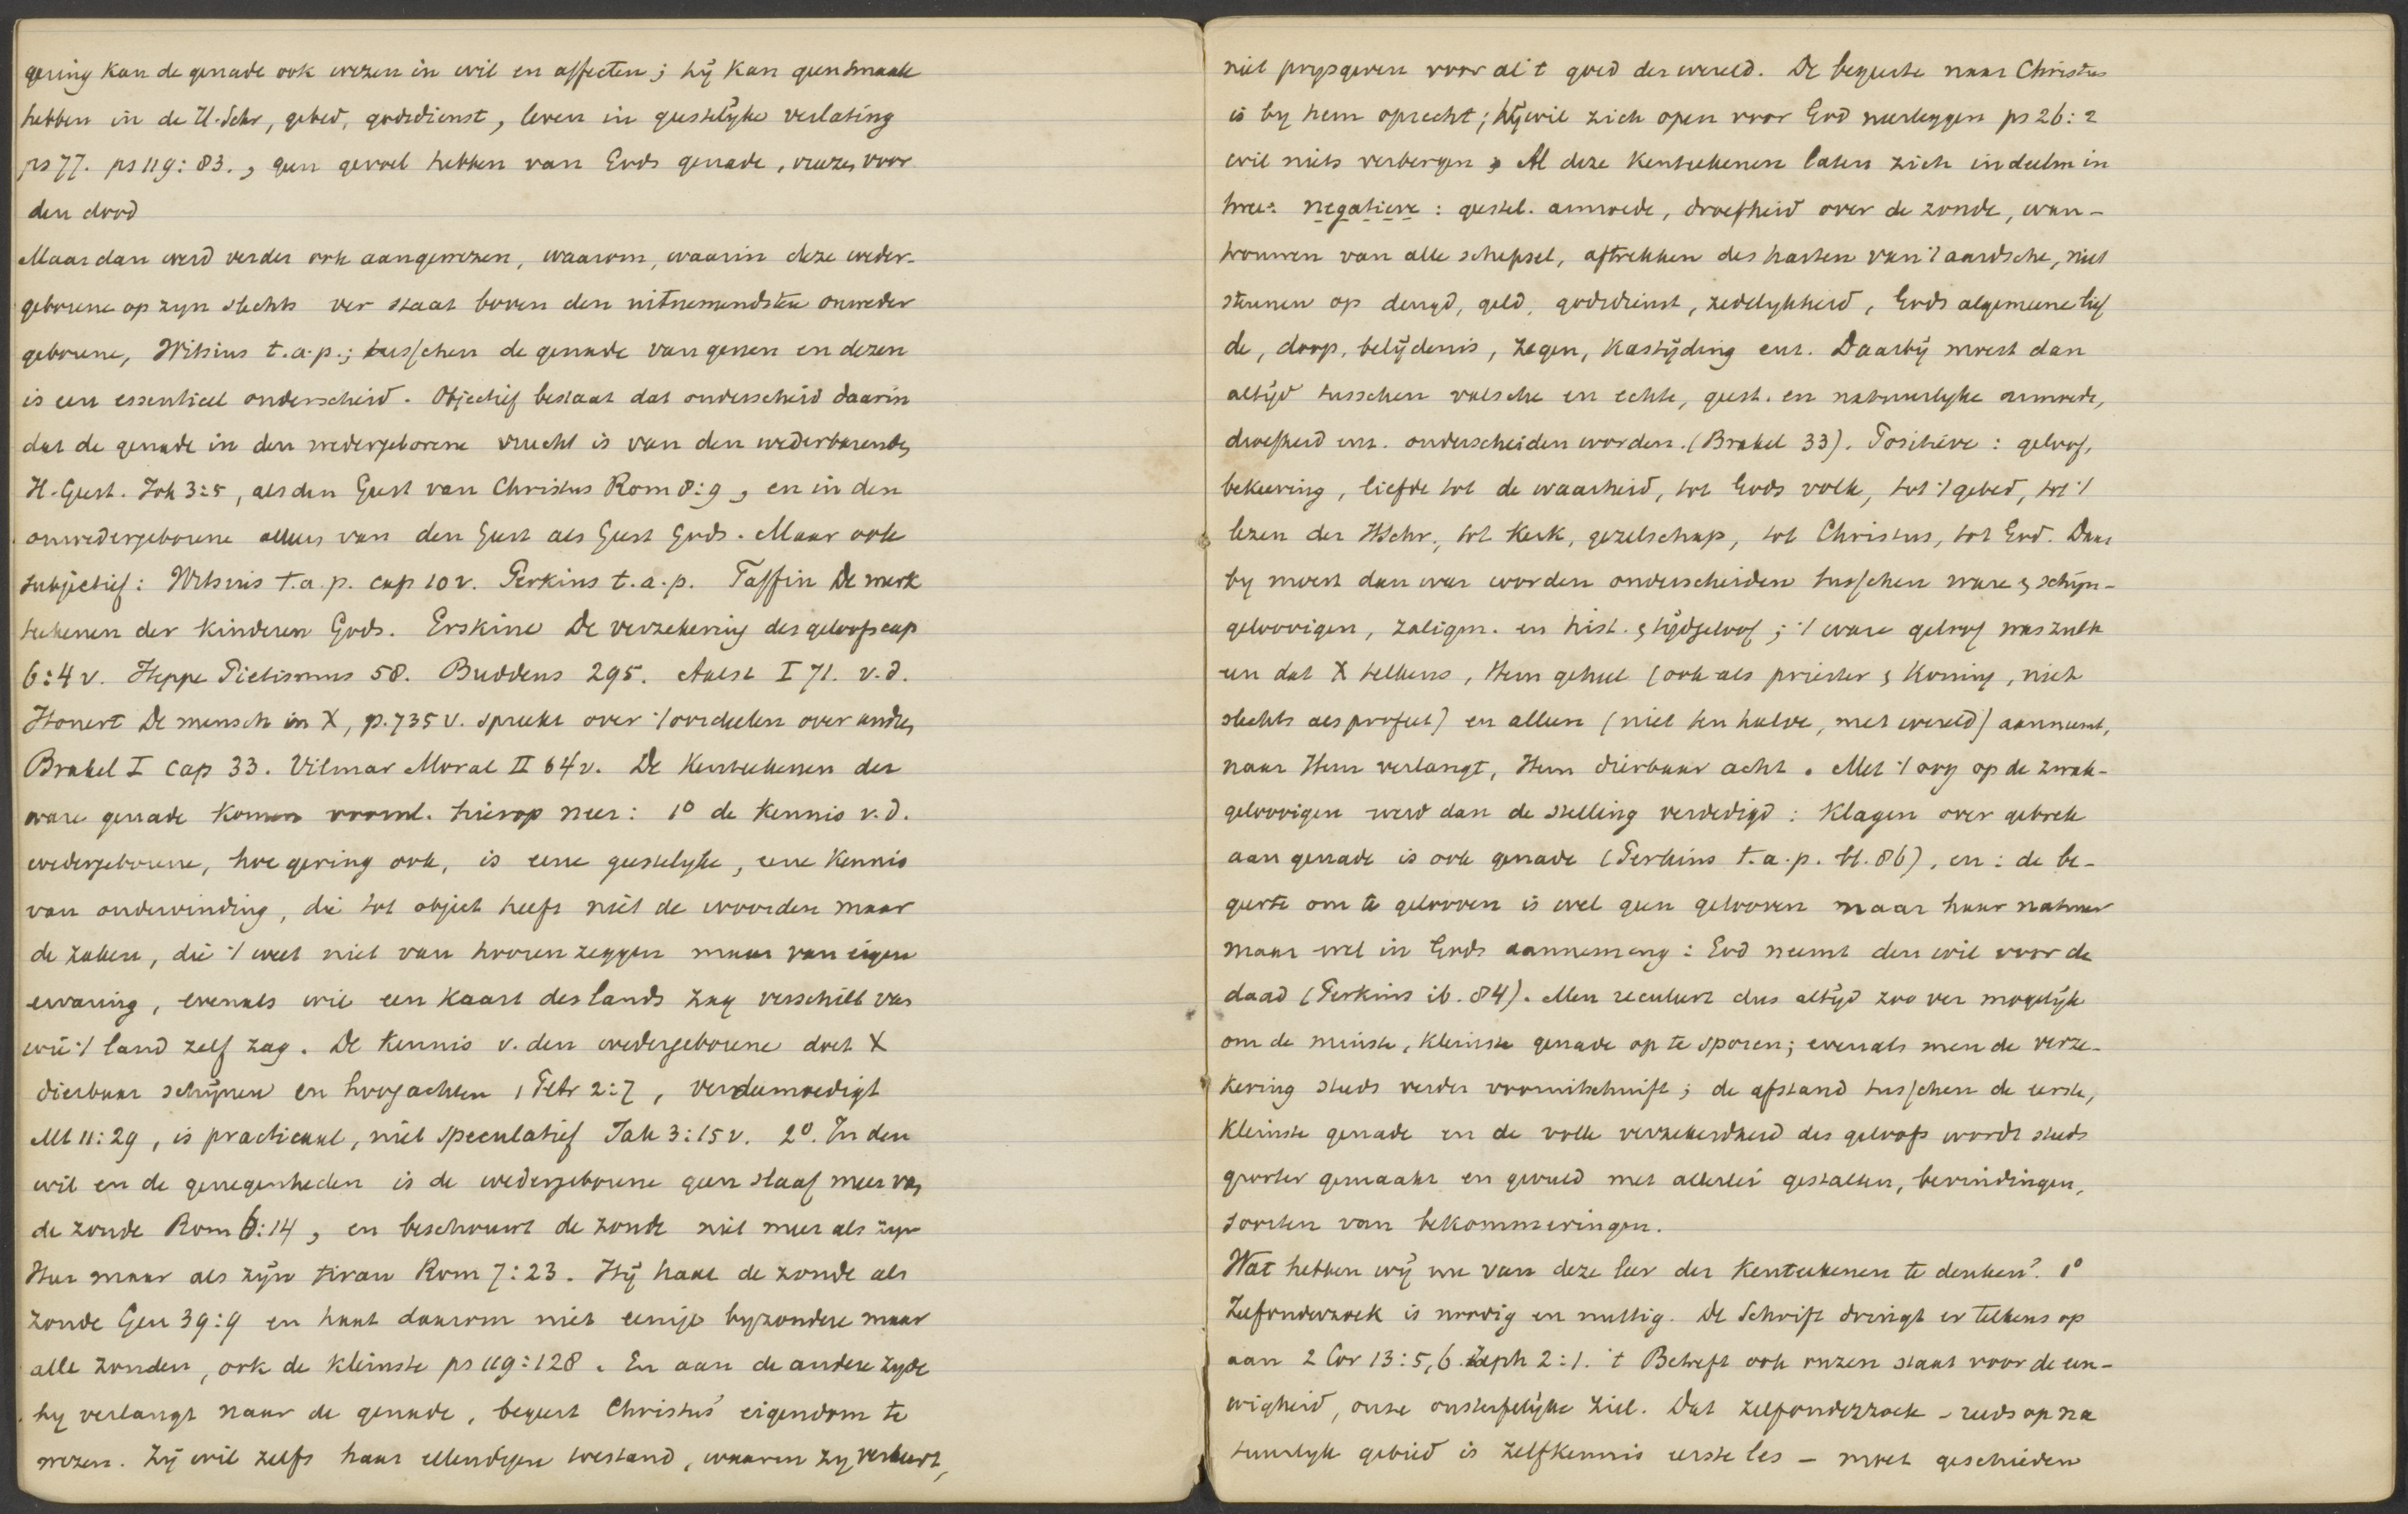 gering kan de genade ook wezen in wil en affecten; hij kan geen smaak
hebben in de H. Schr, gebed, godsdienst, leven in geestelijke verlating
ps 77. ps 119:83., geen gevoel hebben van Gods genade, vreezen voor
den dood
Maar dan werd verder ook aangewezen, waarom, waarin deze weder-
geborene op zyn slechts ver staat boven den uitnemendsten onweder
geborene, Witsius t.a.p.; tusschen de genade van genen en dezen
is een essentieel onderscheid. Objectief bestaat dat onderscheid daarin
dat de genade in den wedergeborene vrucht is van den wederbarenden
H. Geest. Joh 3:5, als den Geest van Christus Rom 8:9, en in den
onwedergeborene alleen van den Geest als Geest Gods. Maar ook
subjectief: Witsius t.a.p. cap 10 v. Perkins t.a.p. Taffin De merk
teekenen der kinderen Gods. Erskine De verzekering des geloofs cap
6:4 v. Heppe Pietismus 58. Buddeus 295. Aalst I 71. v.d.
Honert De mensch in X, p. 735 v. spreekt over 't oordeelen over anderen
Brakel I cap 33. Vilmar Moral II 64 v. De Kenteekenen der
ware genade komen voornl. hierop neer: 1° de kennis v.d.
wedergeborene, hoe gering ook, is eene geestelyke, eene kennis
van ondervinding, die tot object heeft niet de woorden maar
de zaken, die 't weet niet van hooren zeggen maar van eigen
ervaring, evenals wie een kaart des lands zag verschilt van
wie 't land zelf zag. De kennis v. den wedergeborene doet X
dierbaar schijnen en hoogachten 1 Petr 2:7, verdeemoedigt
Mt 11:29, is practicaal, niet speculatief Jak 3:15 v. 2°. In den
wil en de genegenheden is de wedergeborene geen slaaf meer van
de zonde Rom 6:14, en beschouwt de zonde niet meer als zyn
Heer maar als zijn tiran Rom 7:23. Hij haat de zonde als
zonde Gen 39:9 en haat daarom niet eenige byzondere maar
alle zonden, ook de kleinste ps 119:128. En aan de andere zyde
hy verlangt naar de genade, begeert Christus' eigendom te
wezen. Zij wil zelfs haar ellendigen toestand, waarin zy verkeert,
niet prysgeven voor al 't goed der wereld. De begeerte naar Christus
is by hem oprecht; hij wil zich open voor God neerleggen ps 26:2
wil niets verbergen, Al deze kenteekenen laten zich indeelen in
twee: negatieve: geestel. armoede, droefheid over de zonde, wan-
trouwen van alle schepsel, aftrekken des harten van 't aardsche, niet
steunen op deugd, geld, godsdienst, zedelykheid, Gods algemeene lief
de, doop, belijdenis, zegen, kastijding enz. Daarbij moest dan
altijd tusschen valsche en echte, geest. en natuurlyke armoede,
droefheid enz. onderscheiden worden. (Brakel 33). Positieve: geloof,
bekeering, liefde tot de waarheid, tot Gods volk, tot 't gebed, tot 't
lezen der HSchr., tot Kerk, gezelschap, tot Christus, tot God. Daar
by moest dan weer worden onderscheiden tusschen ware & schijn-
geloovigen, zaligm. en hist. & tijdgeloof; 't ware geloof was zulk
een dat X telkens, Hem geheel (ook als priester & Koning, niet
slechts als profeet) en alleen (niet ten halve, met wereld) aanneemt,
naar Hem verlangt, Hem dierbaar acht. Met 't oog op de zwak-
geloovigen werd dan de stelling verdedigd: klagen over gebrek
aan genade is ook genade (Perkins t.a.p. bl. 86), en: de be-
geerte om te gelooven is wel geen gelooven naar haar natuur
maar wel in Gods aanneming: God neemt den wil voor de
daad (Perkins ib. 84). Men reculeert dus altyd zoo ver mogelijk
om de minste, kleinste genade op te sporen; evenals men de verze-
kering steeds verder vooruitschuift; de afstand tusschen de eerste,
kleinste genade en de volle verzekerdheid des geloofs wordt steeds
grooter gemaakt en gevuld met allerlei gestalten, bevindingen,
soorten van bekommeringen.
Wat hebben wij nu van deze leer der Kenteekenen te denken? 1°
Zelfonderzoek is noodig en nuttig. De Schrift dringt er telkens op
aan 2 Cor 13:5,6. Zeph 2:1. 't Betreft ook onzen staat voor de eeu-
wigheid, onze onsterfelijke ziel. Dat zelfonderzoek – reeds op na
tuurlyk gebied is zelfkennis eerste les – moet geschieden